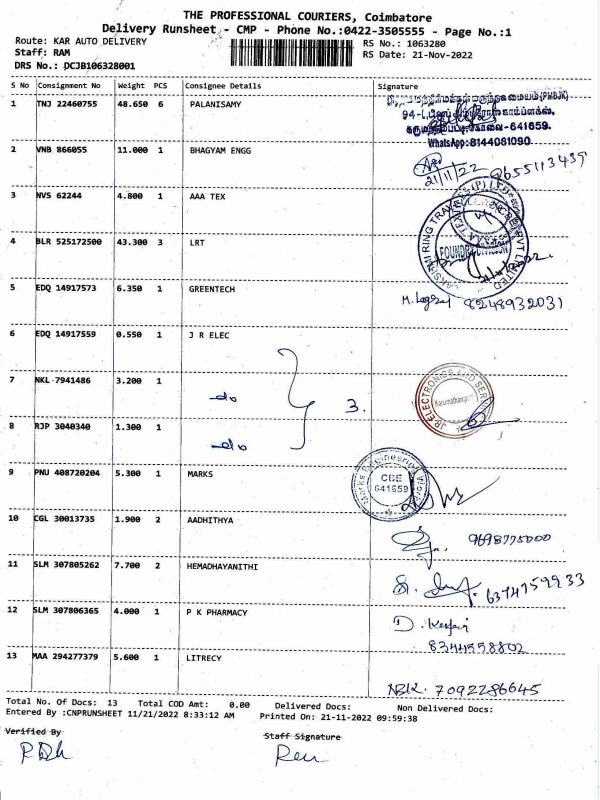 THE PROFESSIONAL COURIERS, Coimbatore
Delivery Runsheet - CMP - Phone No.:0422-3505555 - Page No.:1
Route: KAR AUTO DELIVERY
RS No.: 1063280
Staff: RAM
RS Date: 21-Nov-2022
DRS No.: DCJB106328001
S No Consignment No Weight PCS Consignee Details Signature
1 TNJ 22460755 48.650 6 PALANISAMY
கருமத்தம்பட்டி, கோவை-641659.
WhatsApp:8144081090
2 VNB 866055 11.000 1 BHAGYAM ENGG
21/11/22 9655113439
3 NVS 62244 4.800 1 AAA TEX
4 BLR 525172500 43.300 3 LRT
LAKSHMI RING TRAVELLERS
FOUNDRY DIVISION
5 EDQ 14917573 6.350 1 GREENTECH
8248932031
6 EDQ 14917559 0.550 1 J R ELEC
7 NKL 7941486 3.200 1 do 3.
JR ELECTRONICS AND SERV
8 RJP 3040340 1.300 1 do
9 PNU 408720204 5.300 1 MARKS
Marks Engineering Works
CBE
641659
10 CGL 30013735 1.900 2 AADHITHYA
9698775000
11 SLM 307805262 7.700 2 HEMADHAYANITHI
6374759933
12 SLM 307806365 4.000 1 P K PHARMACY
8344558802
13 MAA 294277379 5.600 1 LITRECY
7092286645
Total No. Of Docs: 13 Total COD Amt: 0.00 Delivered Docs: Non Delivered Docs:
Entered By :CNPRUNSHEET 11/21/2022 8:33:12 AM Printed On: 21-11-2022 09:59:38
Verified By Staff Signature